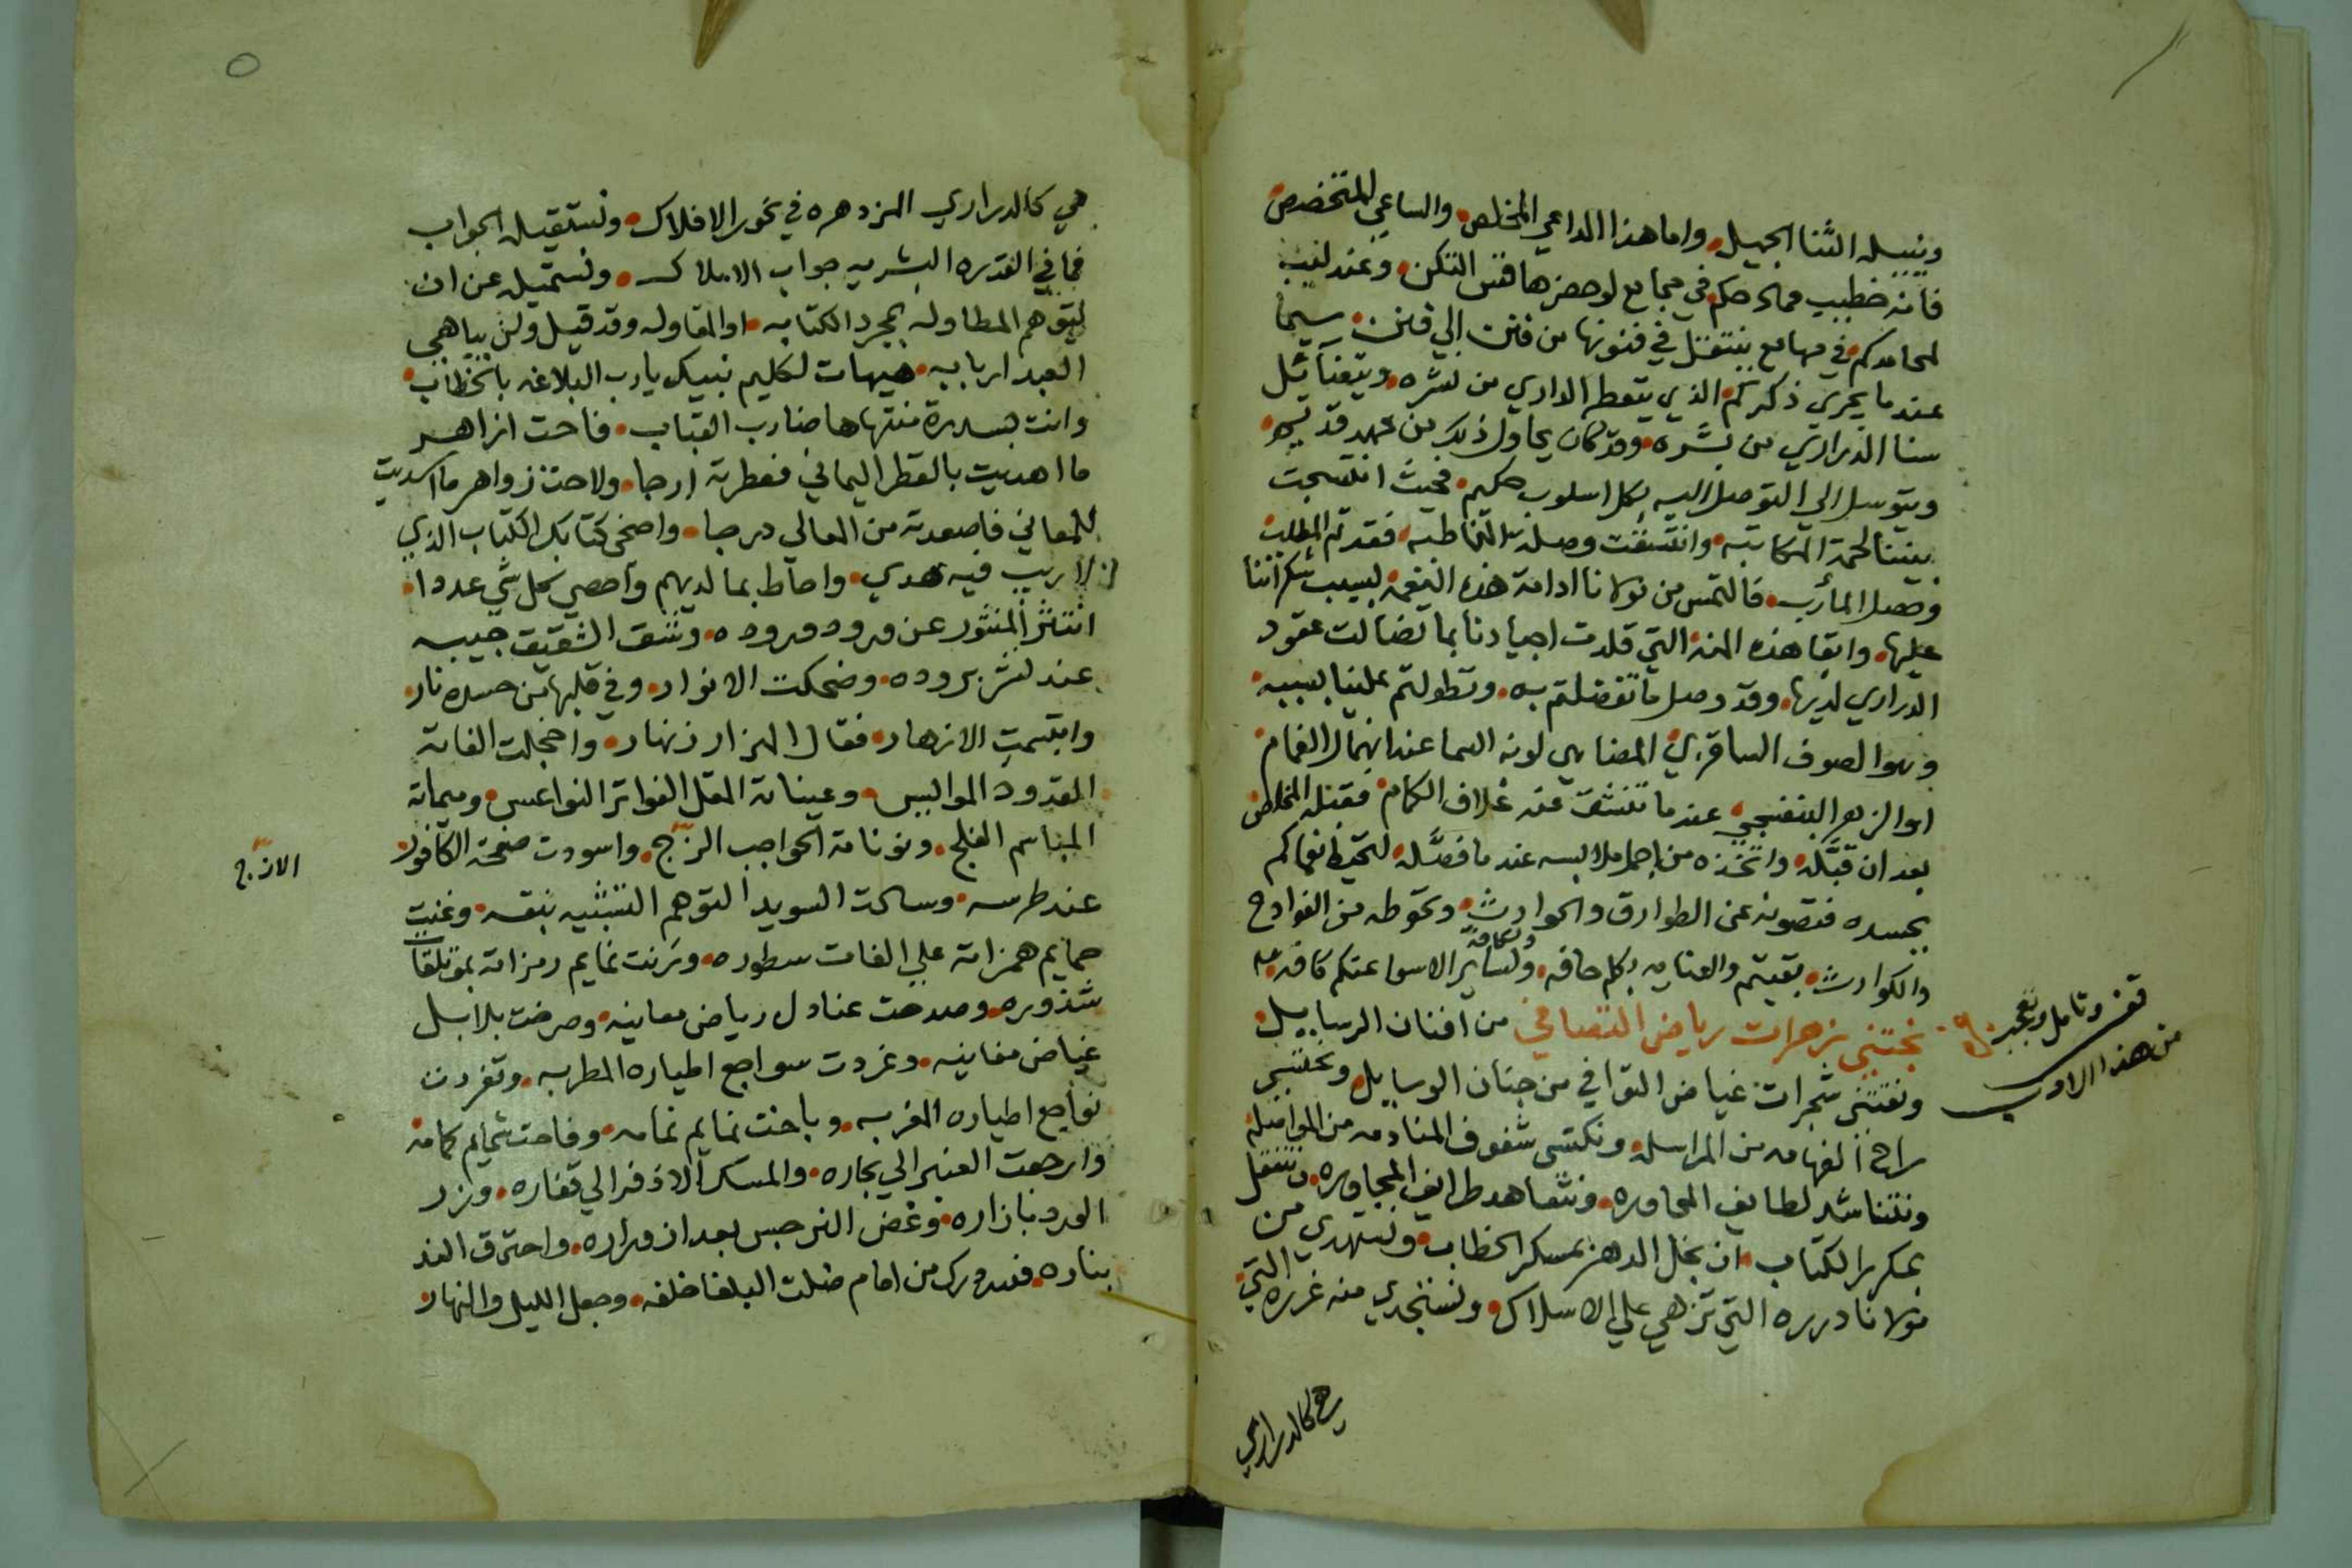 وينيله الثنا الجميل واما هذا الداعي المخلص والساعي المتخصص
فانه خطيب ممادحكم في مجامع لو حضرها قس التكن وعندليب
لمحامدكم في مهامع يتنقل في فنونها من فنن الي فنن سيما
عند ما يجري ذكركم الذي يتعطر الداري من نشره ويتضآئل
سنا الدراري من بشره وقد كان يحاول ذلك من عهد قديم
ويتوسل الي التوصل اليه بكل اسلوب حكيم فحيث انتسجت
بيننا لحمة المكاتبه وانتسقت وصلة المخاطبه فقد تم المطلب
وحصل المأرب فالتمس من مولانا ادامة هذه النعمه بسبب شكراننا
عليها وابقا هذه المنة التي قلدت اجيادنا بما تضالت عقود
الدراري لديها وقد وصل ما تفضلتم به وتطولتم علينا بسببه
وهو الصوف الساقزي المضاهي لونه السما عند انهمال الغمام
او الزهر البنفسجي عند ما تنشق عنه غلاف الكمام فقبله المخلص
بعد ان قبّله واتخذه من اجمل ملابسه عند ما فصّله لتحيط انعامكم
بجسده فتصونه عن الطوارق والحوادث وتحوطه من الفوادح
والكوارث بقيتم والعنايه بكم حافه ولساير الاسوا عنكم كافه
وكافة
نجتني زهرات رياض التصافي من افنان الرسايل
قف وتامل وتعجب
من هذا الادب
ونقتني ثمرات غياض التوافي من جنان الوسايل ونحتسي
راح الفهامه من المراسله ونكتسي شفوف المنادمه من المواصله
ونتناشد لطايف المحاوره ونتعاهد طرايف المجاوره ونتنقل
بمكرر الكتاب ان بخل الدهر بمسكر الخطاب ونستهدي من
مولانا درره التي تزهي علي الاسلاك ونستجدي منه غرره التي
هي كالدراري
هي كالدراري المزدهره في نحور الافلاك ونستقيله الجواب
فما في القدره البشريه جواب الاملاك ونستميله عن ان
يتوهم المطاوله بمجرد الكتابه او المقاوله وقد قيل ولن يباهي
العبد اربابه هيهات لكليم نبيك يا رب البلاغه بالخطاب
وانت بسدرة منتهاها ضارب القباب فاحت ازاهر
ما اهديت بالقطر اليماني فعطرته ارجا ولاحت زواهر ما اسديت
للمعاني فاصعدته من المعالي درجا واضحي كتابك الكتاب الذي
لا ريب فيه هدي واحاط بما لديهم واحصي كل شي عددا
انتثر المنثور عن ورود وروده وشق الشقيق جيبه
عند نشر بروده وضحكت الانوار وفي قلبها من حسده نار
وابتسمت الازهار فقال الهزار زنهار واخجلت الفاته
القدود الموايس وعيناته المقل الفواتر النواعس وميماته
المباسم الفلج ونوناته الحواجب الزج واسودت صفحة الكافور
الازج
عند طرسه وسالت السويدا لتوهم التشبيه بنقسه وغنت
حمايم همزاته علي الفات سطوره ورنت تمايم رمزاته بموتلقات
شذوره وصدحت عنادل رياض معانيه وصرخت بلابل
غياض مغانيه وغردت سواجع اطياره المطربه وتفردت
نوابع اطياره المغربه وباحت نمايم نمامه وفاحت شمايم كمامه
وارجعت العنبر الي بحاره والمسك الاذفر الي قفاره وزر
الورد بازاره وغض النرجس بعد ازوراره واحترق الند
بناره فلله درك من امام ضلت البلغا خلفه وجعل الليل والنهار